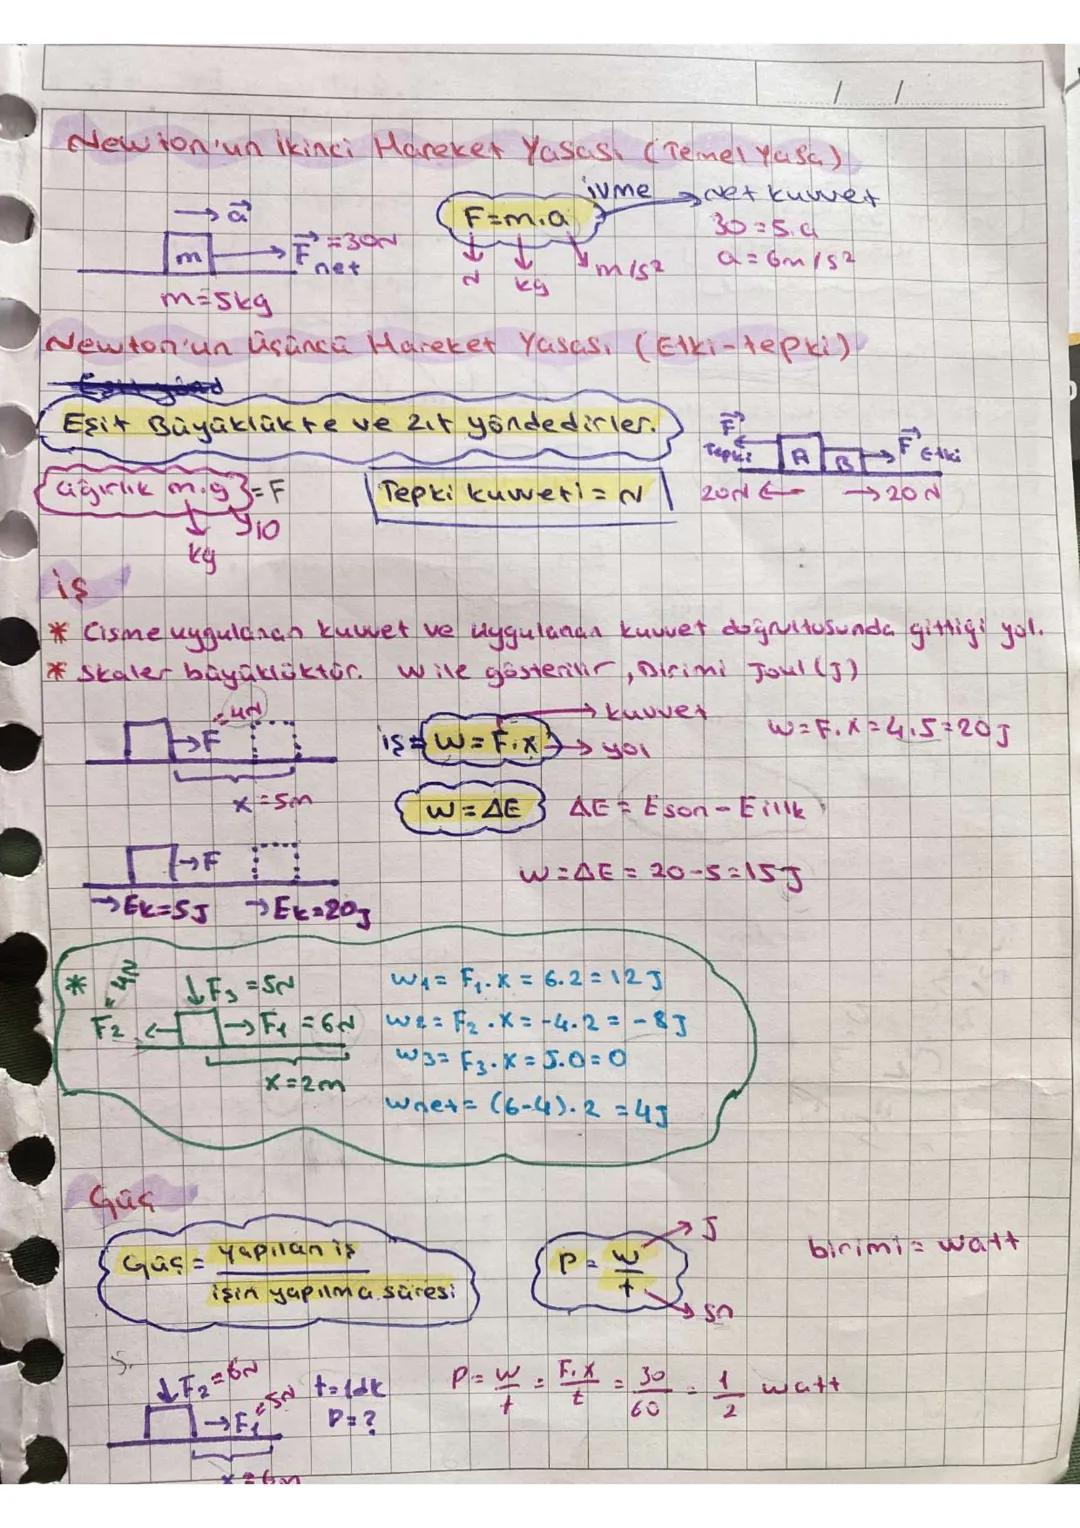 / /
Newton'un İkinci Hareket Yasası (Temel Yasa)
→ a
m
F net = 30N
m=5kg
F=m.a
ivme
net kuvvet
N
kg
m/s²
30=5.a
a=6m/s²
Newton'un Üçüncü Hareket Yasası (Etki-tepki)
Eşit Büyüklükte ve zıt yöndedirler.
F Tepki
A
B
F Etki
20N ← → 20N
ağırlık m.g = F
kg
10
Tepki kuvveti = N
iş
* Cisme uygulanan kuvvet ve uygulanan kuvvet doğrultusunda gittiği yol.
* Skaler büyüklüktür. W ile gösterilir, Birimi Joul (J)
→F =4N
x=5m
iş = W=F.x
→ kuvvet
→ yol
W=F.x=4.5=20J
W=ΔE
ΔE = Eson - Eilk
→F
→Ek=5J →Ek=20J
W=ΔE = 20-5=15J
* F2 = 4N
↓F3 =5N
→F1 =6N
x=2m
W1= F1.x = 6.2=12J
W2= F2.x=-4.2=-8J
W3= F3.x=5.0=0
Wnet= (6-4).2 =4J
Güç
Güç = yapılan iş
işin yapılma süresi
P= W
t
→ J
→ sn
birimi= watt
↓F2=6N
→F1=5N
t=1dk
P=?
x=6m
P= W/t = F.x/t = 30/60 = 1/2 watt